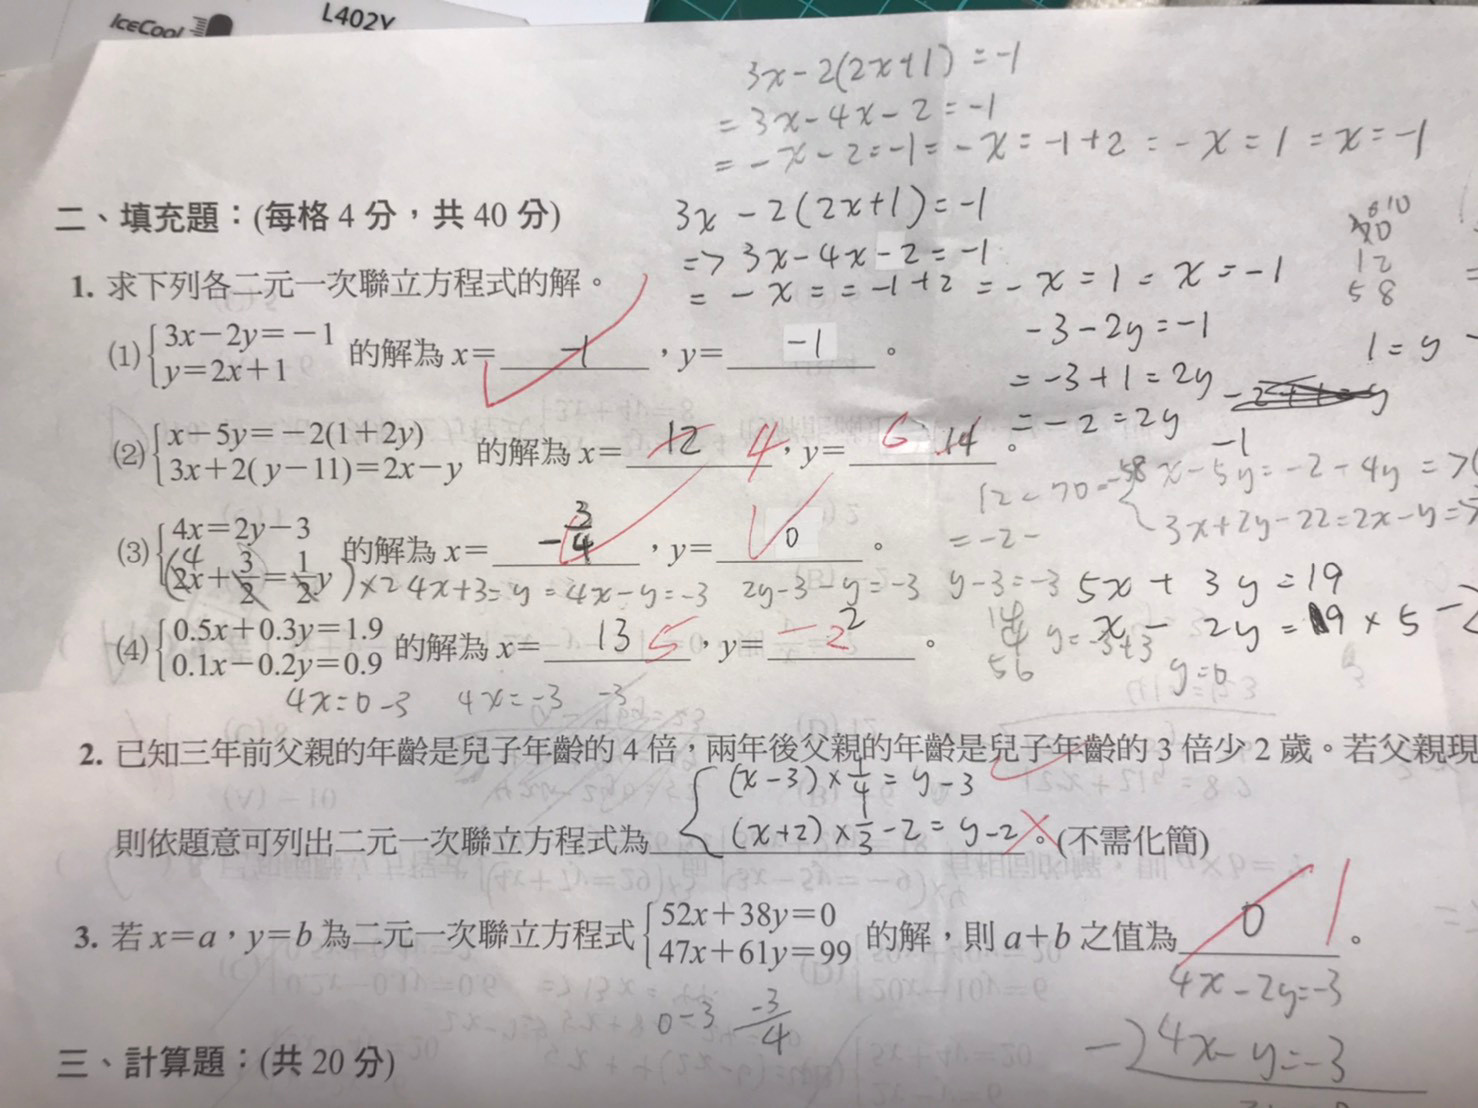 IceCool
L402Y
3x-2(2x+1)=-1
=3x-4x-2=-1
=-x-2=-1=-x=-1+2=-x=1=x=-1
二、填充題：(每格 4 分，共 40 分)
3x-2(2x+1)=-1
=>3x-4x-2=-1
=-x==-1+2=-x=1=x=-1
12
58
1. 求下列各二元一次聯立方程式的解。
-3-2y=-1
1=y
(1) 3x-2y=-1
y=2x+1 的解為 x= -1 ，y= -1 。
=-3+1=2y
=-2=2y
-1
(2) x-5y=-2(1+2y)
3x+2(y-11)=2x-y 的解為 x= 12 4 ，y= 6 14 。
x-5y=-2-4y
3x+2y-22=2x-y
12-70=-58
=-2-
(3) 4x=2y-3
2x+3/2=1/2y 的解為 x= -3/4 ，y= 0 。
)×2 4x+3=y=4x-y=-3 2y-3-y=-3 y-3=-3
5x+3y=19
x-2y=
19×5-
y=-3+3
y=0
14
4
56
(4) 0.5x+0.3y=1.9
0.1x-0.2y=0.9 的解為 x= 13 5 ，y= -2 2 。
4x=0-3 4x=-3 -3
2. 已知三年前父親的年齡是兒子年齡的 4 倍，兩年後父親的年齡是兒子年齡的 3 倍少 2 歲。若父親現
(x-3)×1/4=y-3
(x+2)×1/3-2=y-2
則依題意可列出二元一次聯立方程式為 。(不需化簡)
3. 若 x=a，y=b 為二元一次聯立方程式 52x+38y=0
47x+61y=99 的解，則 a+b 之值為 0 1 。
4x-2y=-3
-)4x-y=-3
0-3 -3/4
三、計算題：(共 20 分)